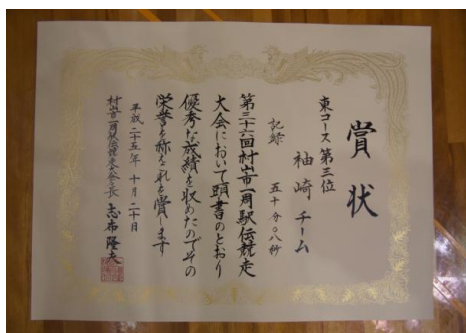 賞状
東コース 第三位
袖崎 チーム
記録 五十分〇八秒
第三十六回村山市一周駅伝競走
大会において頭書のとおり
優秀な成績を収めたのでその
栄誉を称えこれを賞します
平成二十五年十月二十日
村山市一周駅伝競走大会会長 志布隆夫